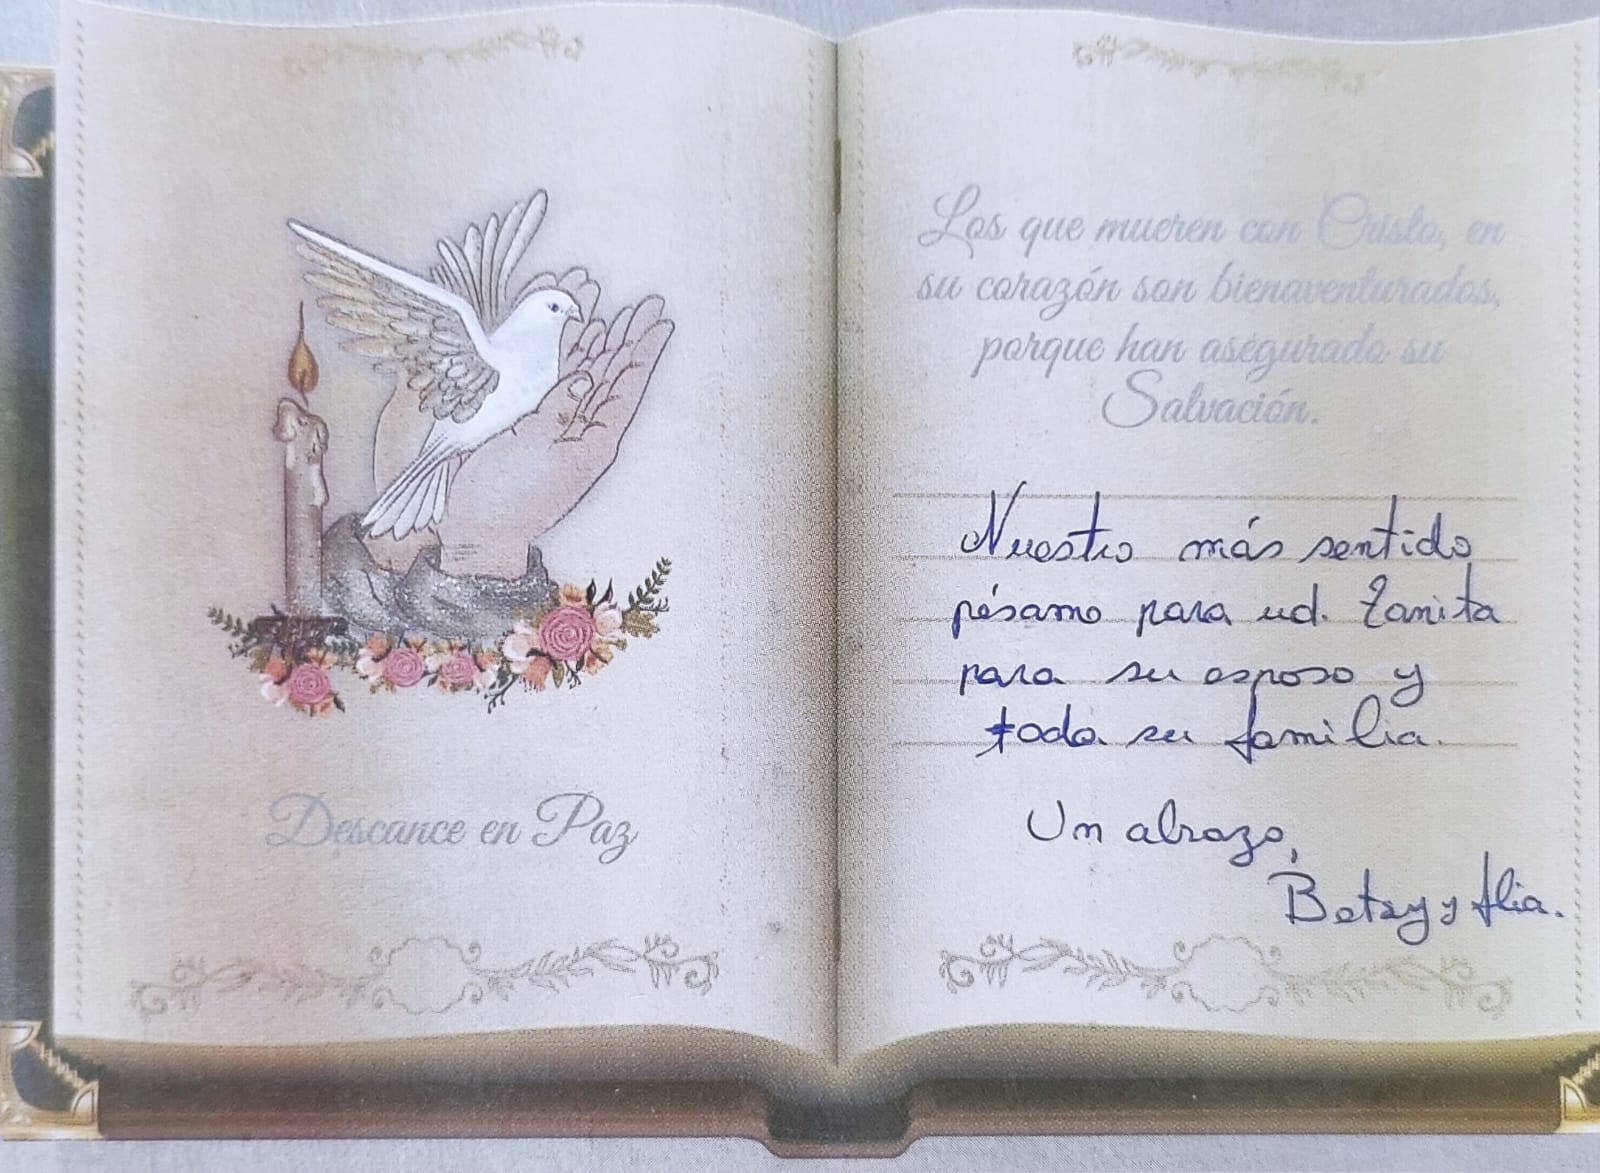 Descance en Paz
Los que mueren con Cristo, en
su corazón son bienaventurados,
porque han asegurado su
Salvación.
Nuestro más sentido
pésamo para ud. Zanita
para su esposo y
toda su familia.
Un abrazo,
Betsy y